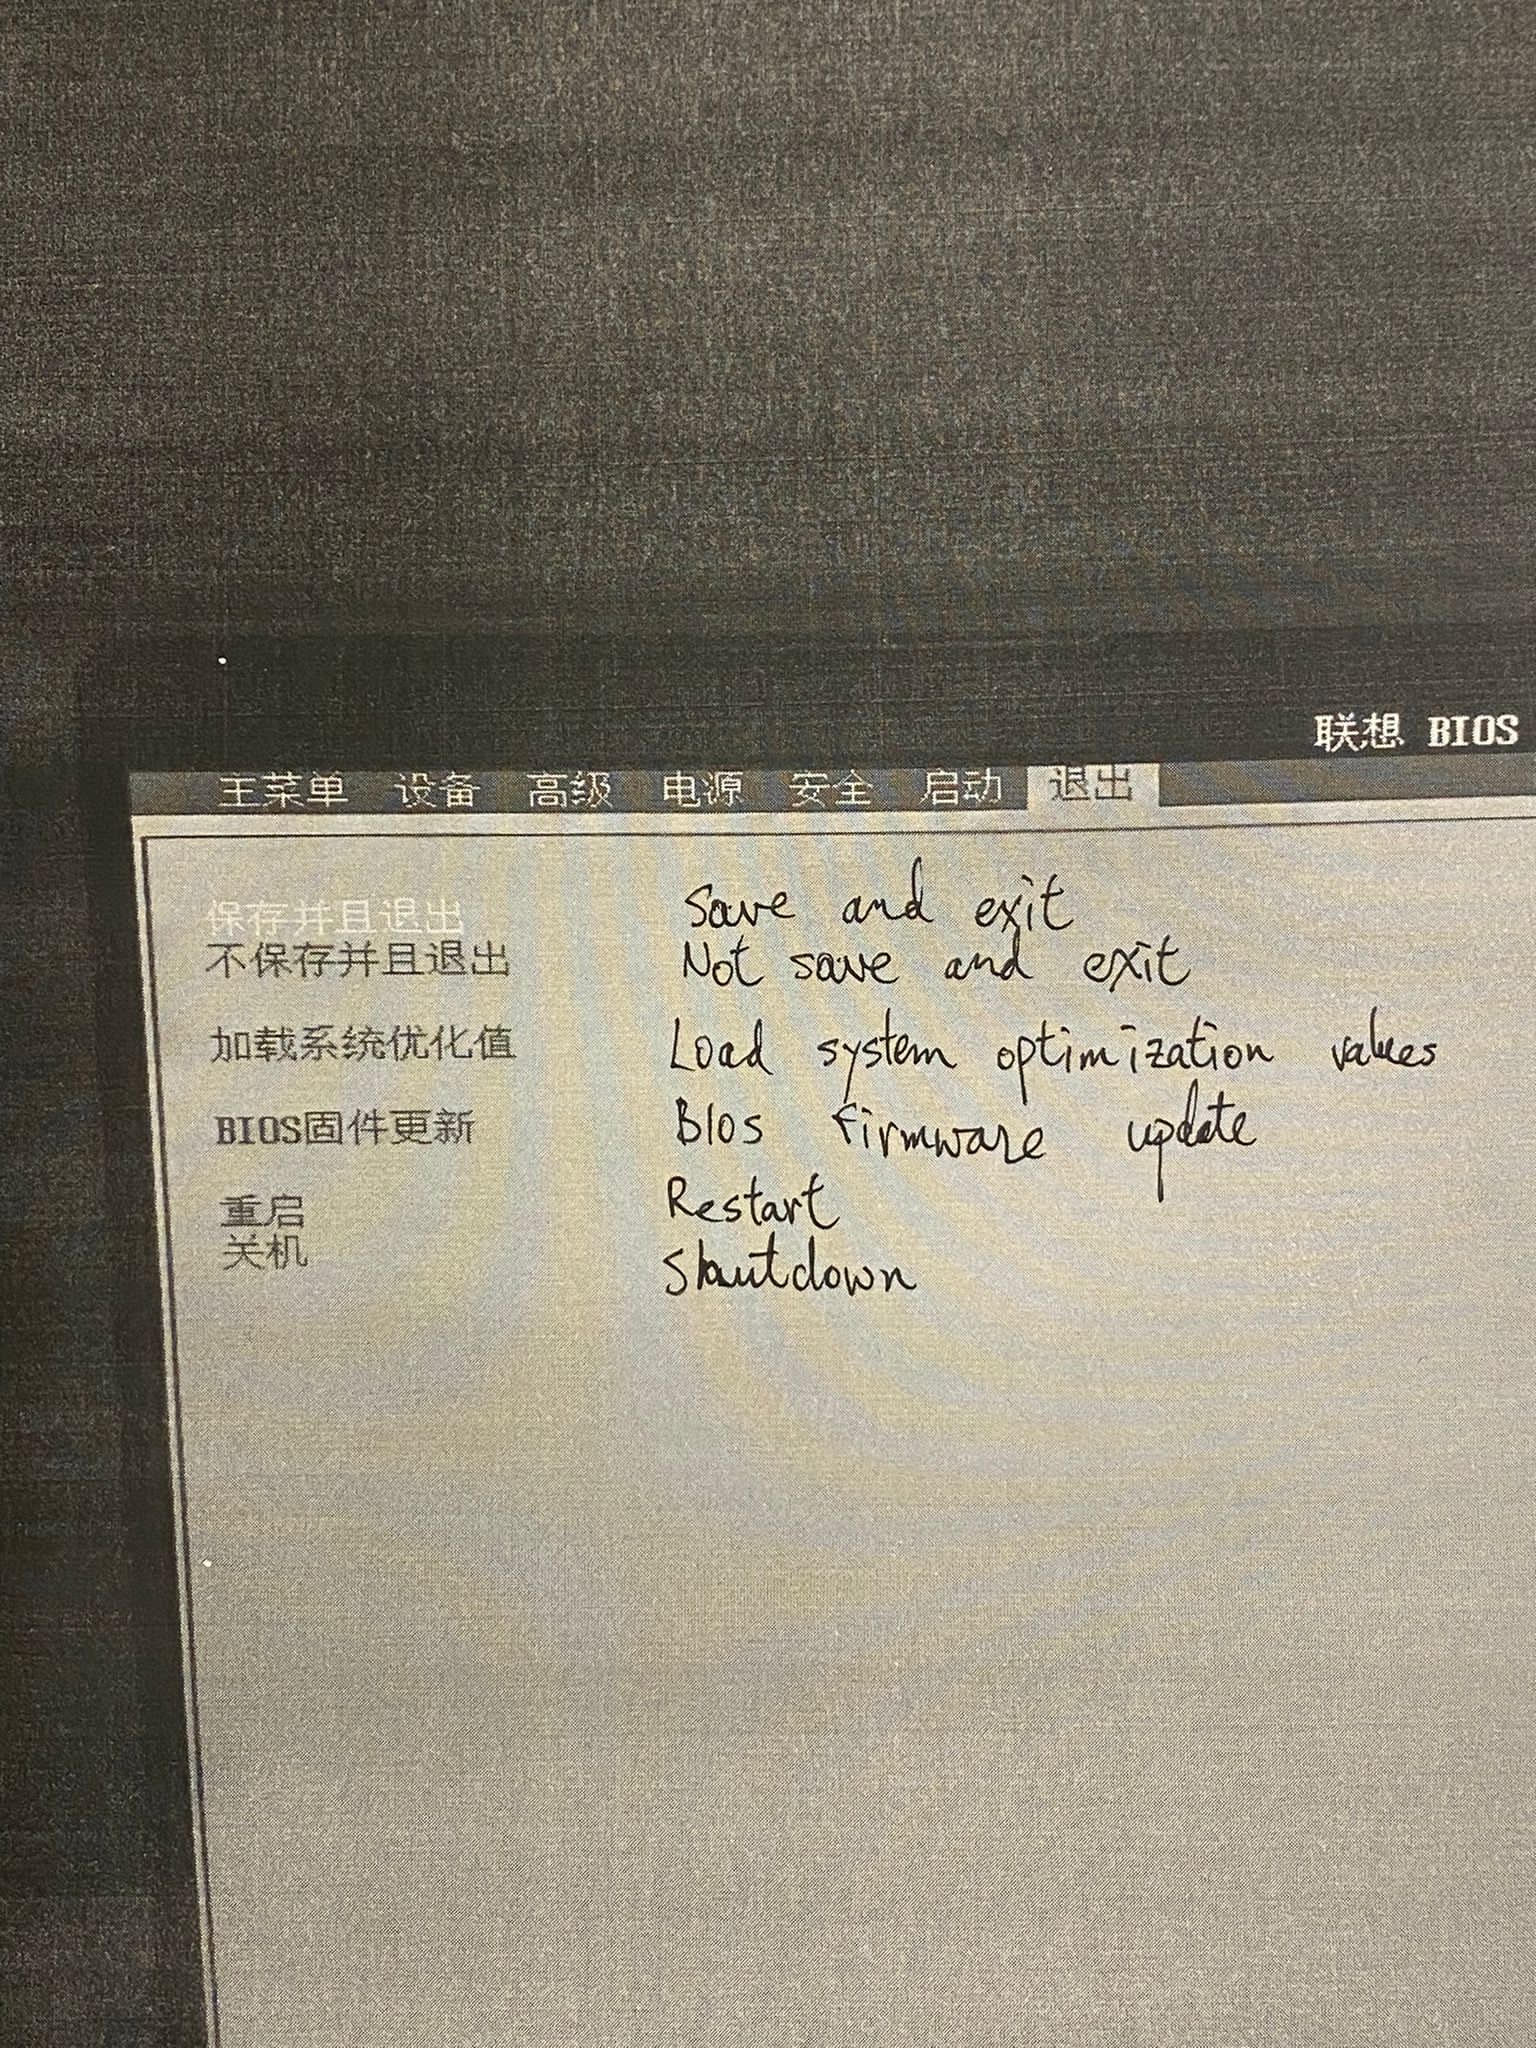 联想 BIOS
主菜单 设备 高级 电源 安全 启动 退出
保存并且退出 Save and exit
不保存并且退出 Not save and exit
加载系统优化值 Load system optimization values
BIOS固件更新 BIOS firmware update
重启 Restart
关机 Shutdown